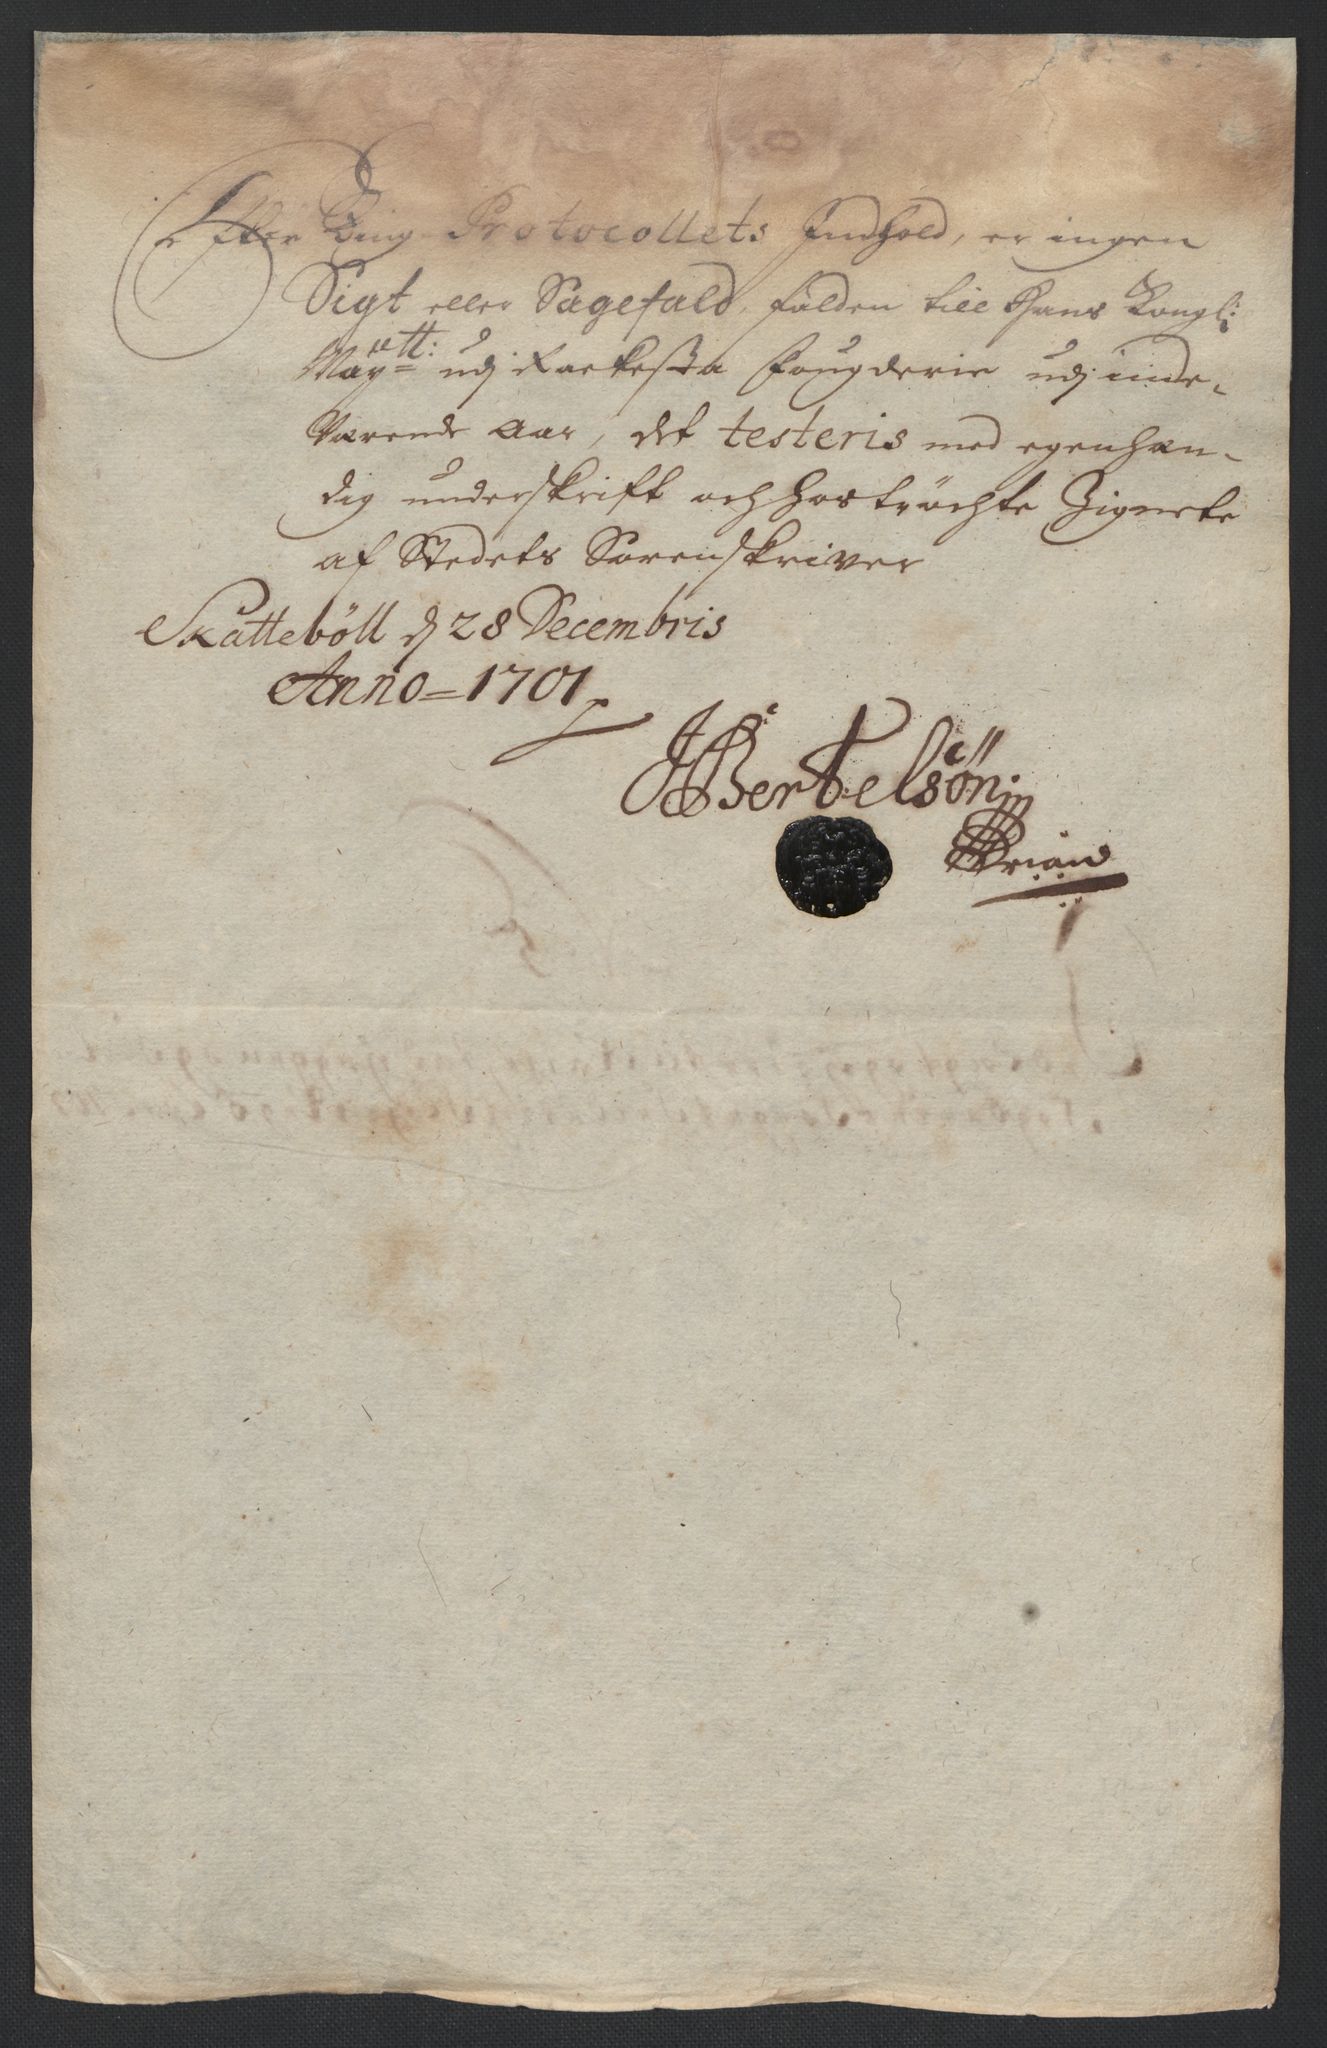 Efter Ting Protocollets Indhold, er ingen
Sigt eller Sagefald, falden till Hans Kongl:
Maytt: udj Fougderie udj inde-
Værende Aar, det testeris med egenhæn-
dig underskrift och hoströchte Zignete
af Stedets Sorenskriver
Skatteböll d 28 Decembris
Anno = 1701
JBertelsön